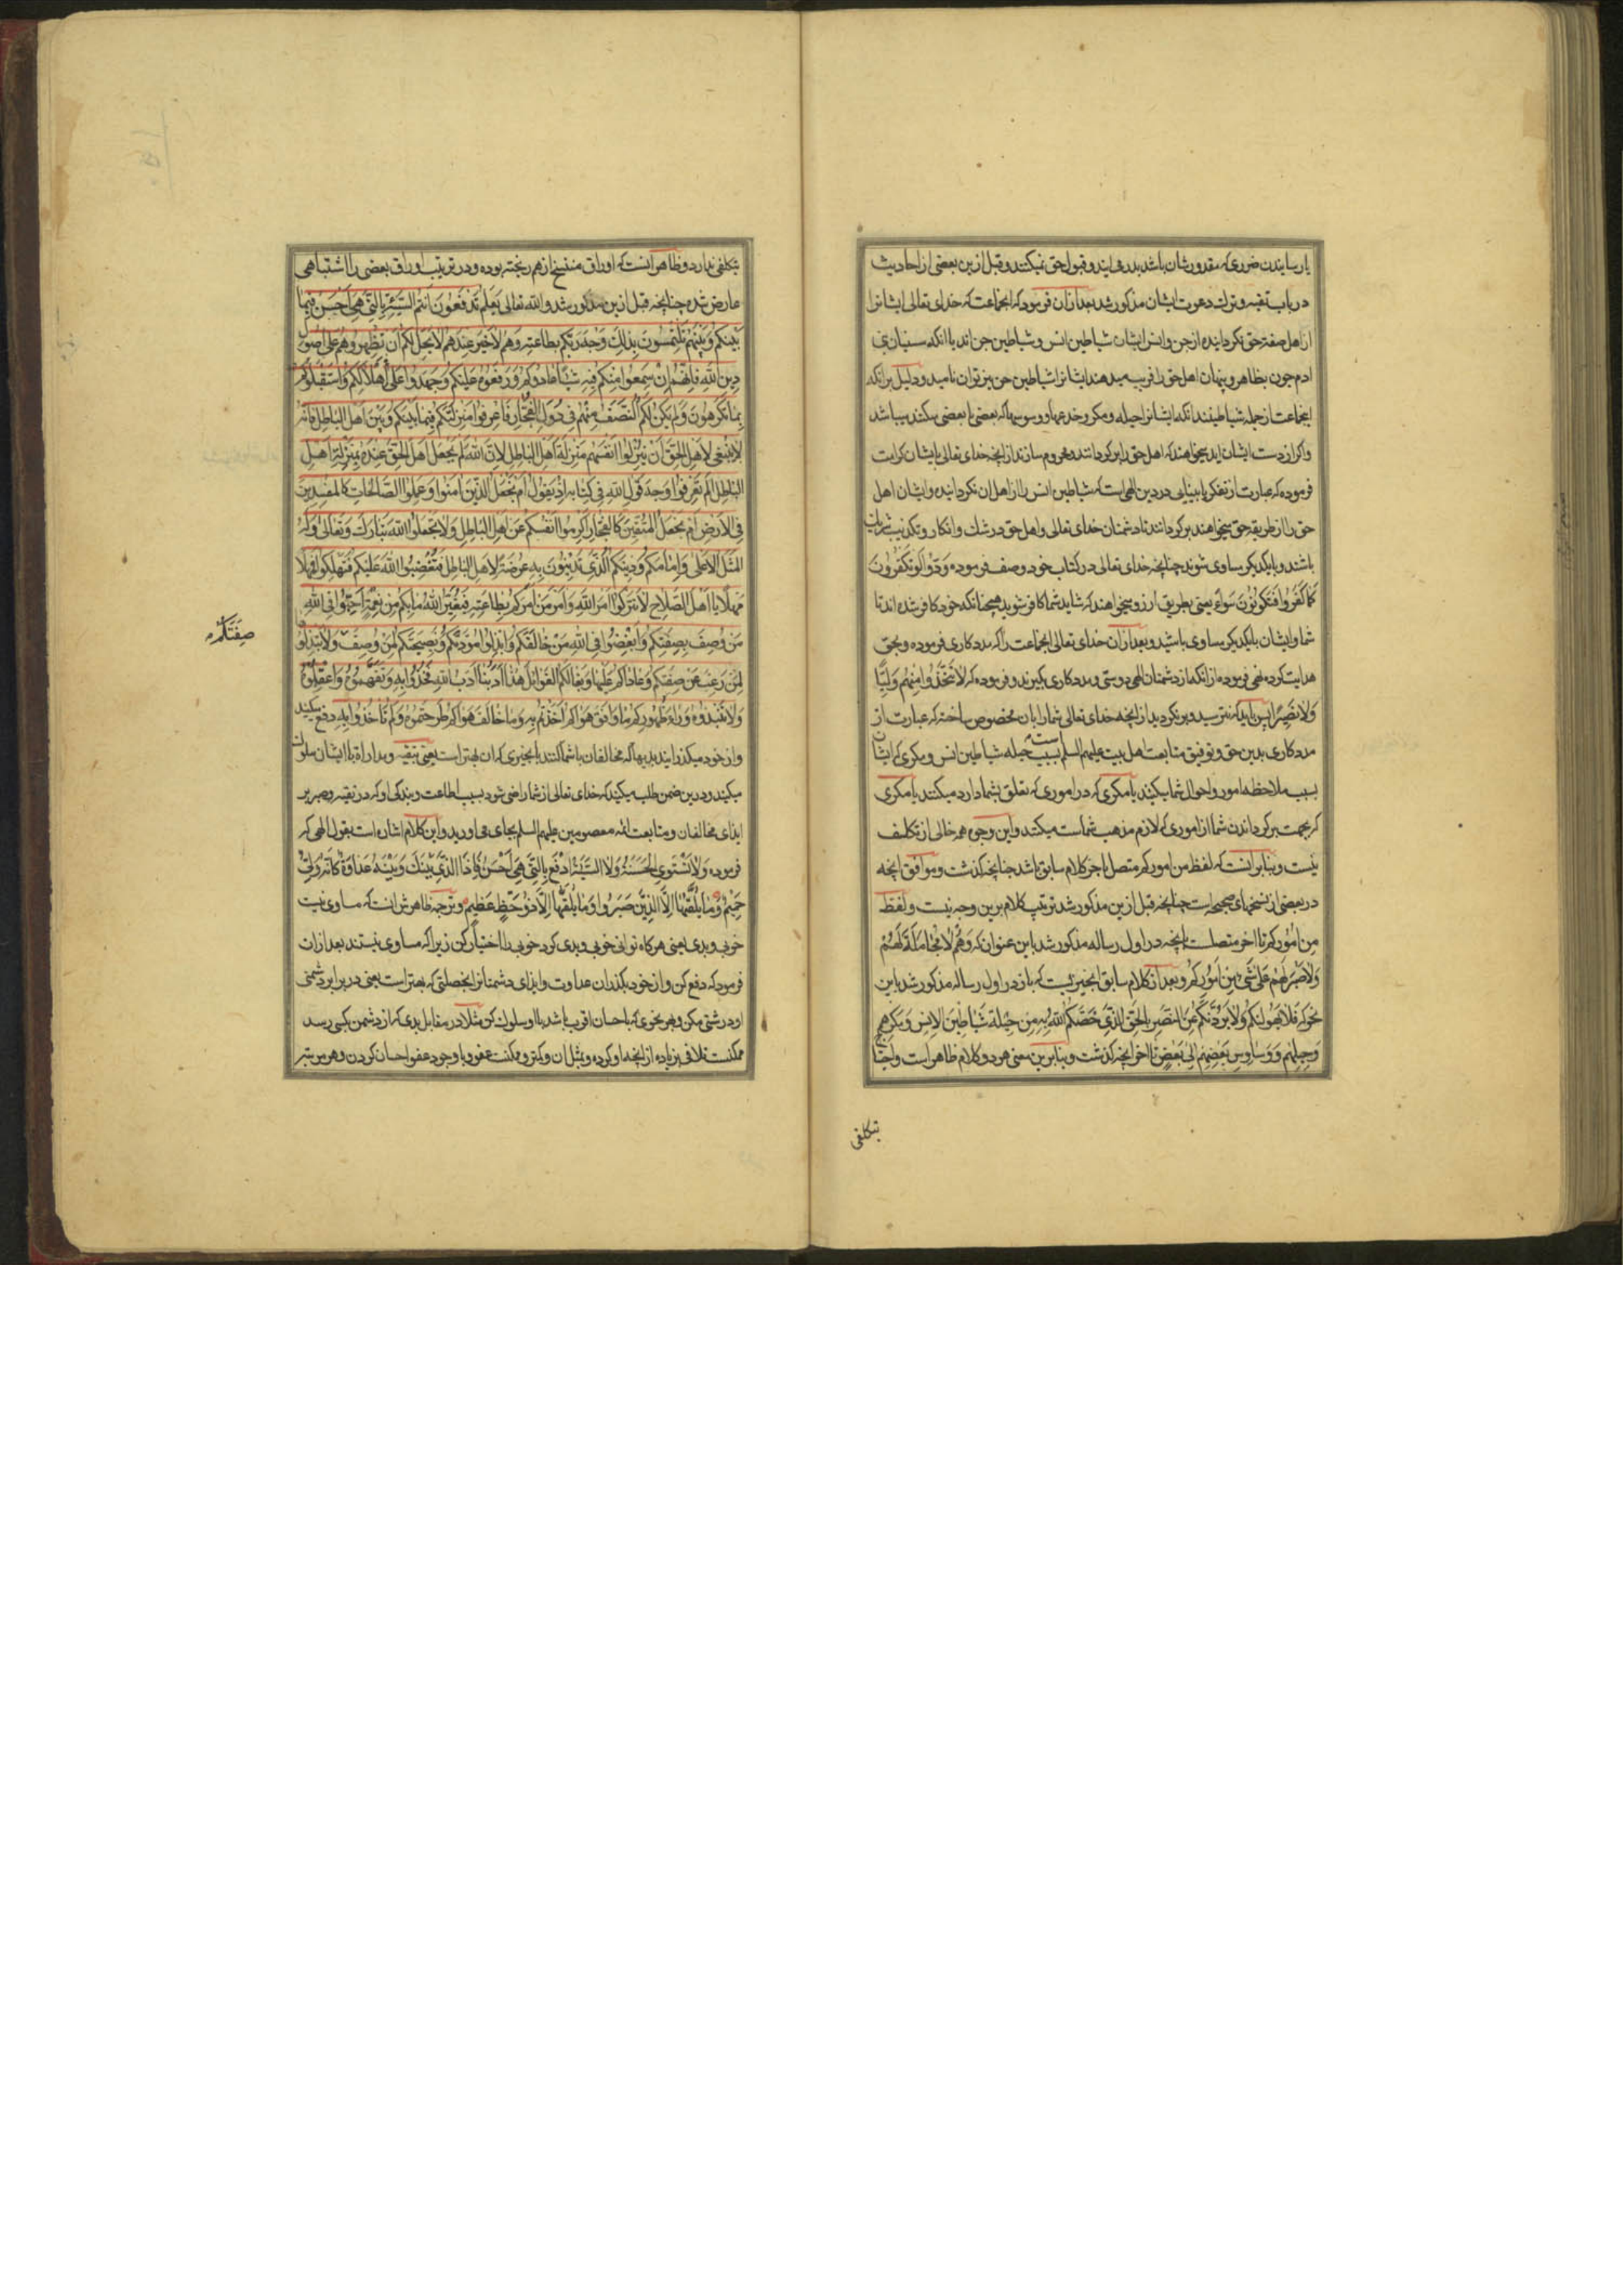 یا رسانیدن ضرری که مقدورشان باشد بدر می ایند و قبول حق نمیکنند و قبل ازین بعضی از احادیث
در باب تقیه و ترک دعوت ایشان مذکور شد بعد ازان فرمود که انجماعت که خدای تعالی ایشانرا
از اهل صفت حق نکردانیده از جن و انس ایشان شیاطین انس و شیاطین جن اند با انکه
ادم چون بظاهر و پنهان اهل حق را فریب میدهند ایشانرا شیاطین جن نیز توان نامید و دلیل برانکه
اینجماعت از جمله شیاطینند انکه ایشانرا حیله و مکر و خدعها و وسوسها که بعضی با بعضی میکنند میباشد
و اکر از دست ایشان اید میخواهند که اهل حق را برکردانند و محروم سازند از انچه خدای تعالی بایشان کرامت
فرموده که عبارت از تفکر یا بینایی در دین الهی است که شیاطین انس را از اهل ان نکردانیده و ایشان اهل
حق را از طریقه حق میخواهند برکردانند تا دشمنان خدای تعالی و اهل حق در شک و انکار و تکذیب شریک
باشند و با یکدیکر مساوی شوند چنانچه خدای تعالی در کتاب خود وصف فرموده وَدُّوا لَوْ تَكْفُرُونَ
كَمَا كَفَرُوا فَتَكُونُونَ سَوَاءً یعنی بطریق ارزو میخواهند که شاید شما کافر شوید همچنانکه خود کافر شده اند تا
شما و ایشان با یکدیکر مساوی باشید و بعد ازان خدای تعالی انجماعت را که مددکاری فرموده و بحق
هدایت کرده نهی فرموده از انکه از دشمنان الهی دوستی و مددکاری بکیرند و فرموده که لَا تَتَّخِذُوا مِنْهُمْ وَلِيًّا
وَلَا نَصِيرًا پس باید که نترسید و برنکردید از انچه خدای تعالی شما را بان مخصوص ساخته که عبارت از
مددکاری بدین حق و توفیق متابعت اهل بیت علیهم السلم است بسبب حیله شیاطین انس و مکری که ایشان
بسبب ملاحظه امور و احوال شما میکنند یا مکری که در اموری که تعلق بشما دارد میکنند یا مکری
که بجهت برکرداندن شما از اموری که لازم مذهب شماست میکنند و این وجوه همه خالی از تکلف
نیست و بنابر انست که لفظ من امورکم متصل باخر کلام سابق باشد چنانچه کذشت و موافق انچه
در بعضی از نسخهای صحیحه است چنانچه قبل ازین مذکور شد ترتیب کلام برین وجه نیست و لفظ
مِنْ اُمُورِكُمْ تا اخر متصلست بانچه در اول رساله مذکور شد باین عنوان که وَهُمْ لَا مُجَامَلَةَ لَهُمْ
وَلَا صَبْرَ لَهُمْ عَلَى شَيْءٍ مِنْ اُمُورِكُمْ و بعد از کلام سابق انچیزیست که باز در اول رساله مذکور شد باین
نحو که فَلَا يَهُولَنَّكُمْ وَلَا يَرُدَّنَّكُمْ عَنِ النَّصْرِ بِالْحَقِّ الَّذِي خَصَّكُمُ اللَّهُ بِهِ مِنْ حِيلَةِ شَيَاطِينِ الْاِنْسِ وَمَكْرِهِمْ
وَحِيَلِهِمْ وَوَسَاوِسِ بَعْضِهِمْ اِلَى بَعْضٍ تا اخر انچه کذشت و بنابرین معنی هر دو کلام ظاهر است و احتیاج
بتکلفی
بتکلفی ندارد و ظاهر انست که اوراق منتسخ از هم ریخته بوده و در ترتیب اوراق بعضی را اشتباهی
عارض شده چنانچه قبل ازین مذکور شد و الله تعالی یعلم تَدْفَعُونَ اَنْتُمُ السَّيِّئَةَ بِالَّتِي هِيَ اَحْسَنُ فِيمَا
بَيْنَكُمْ وَبَيْنَهُمْ تَلْتَمِسُونَ بِذَلِكَ وَجْهَ رَبِّكُمْ بِطَاعَتِهِ وَهُمْ لَا خَيْرَ عِنْدَهُمْ لَا يَحِلُّ لَكُمْ اَنْ تُظْهِرُوهُمْ عَلَى اُصُولِ
دِينِ اللَّهِ فَاِنَّهُمْ اِنْ سَمِعُوا مِنْكُمْ فِيهِ شَيْئًا عَادُوكُمْ وَرَفَعُوهُ عَلَيْكُمْ وَجَهَدُوا عَلَى اِهْلَاكِكُمْ وَاسْتَقْبَلُوكُمْ
بِمَا تَكْرَهُونَ وَلَمْ يَكُنْ لَكُمُ النَّصَفُ مِنْهُمْ فِي دُوَلِ الْفُجَّارِ فَاعْرِفُوا مَنْزِلَتَكُمْ فِيمَا بَيْنَكُمْ وَبَيْنَ اَهْلِ الْبَاطِلِ فَاِنَّهُ
لَا يَنْبَغِي لِاَهْلِ الْحَقِّ اَنْ يُنْزِلُوا اَنْفُسَهُمْ مَنْزِلَةَ اَهْلِ الْبَاطِلِ لِاَنَّ اللَّهَ لَمْ يَجْعَلْ اَهْلَ الْحَقِّ عِنْدَهُ بِمَنْزِلَةِ اَهْلِ
الْبَاطِلِ اَلَمْ تَعْرِفُوا وَجْهَ قَوْلِ اللَّهِ فِي كِتَابِهِ اِذْ يَقُولُ اَمْ نَجْعَلُ الَّذِينَ آمَنُوا وَعَمِلُوا الصَّالِحَاتِ كَالْمُفْسِدِينَ
فِي الْاَرْضِ اَمْ نَجْعَلُ الْمُتَّقِينَ كَالْفُجَّارِ اَكْرِمُوا اَنْفُسَكُمْ عَنْ اَهْلِ الْبَاطِلِ وَلَا تَجْعَلُوا اللَّهَ تَبَارَكَ وَتَعَالَى وَلَهُ
الْمَثَلُ الْاَعْلَى وَاِمَامَكُمْ وَدِينَكُمُ الَّذِي تَدِينُونَ بِهِ عُرْضَةً لِاَهْلِ الْبَاطِلِ فَتُغْضِبُوا اللَّهَ عَلَيْكُمْ فَتَهْلِكُوا فَمَهْلًا
مَهْلًا يَا اَهْلَ الصَّلَاحِ لَا تَتْرُكُوا اَمْرَ اللَّهِ وَاَمْرَ مَنْ اَمَرَكُمْ بِطَاعَتِهِ فَيُغَيِّرَ اللَّهُ مَا بِكُمْ مِنْ نِعْمَةٍ اَحِبُّوا فِي اللَّهِ
مَنْ وَصَفَ بِصِفَتِكُمْ وَاَبْغِضُوا فِي اللَّهِ مَنْ خَالَفَكُمْ وَابْذُلُوا مَوَدَّتَكُمْ وَنَصِيحَتَكُمْ لِمَنْ وَصَفَ وَلَا تَبْذُلُوهَا
صِفَتَكُمْ
لِمَنْ رَغِبَ عَنْ صِفَتِكُمْ وَعَادَاكُمْ عَلَيْهَا وَبَغَا لَكُمُ الْغَوَائِلَ هَذَا اَدَبُنَا اَدَبُ اللَّهِ فَخُذُوا بِهِ وَتَفَهَّمُوهُ وَاعْقِلُوهُ
وَلَا تَنْبِذُوهُ وَرَاءَ ظُهُورِكُمْ مَا وَافَقَ هَوَاكُمْ اَخَذْتُمْ بِهِ وَمَا خَالَفَ هَوَاكُمْ طَرَحْتُمُوهُ وَلَمْ تَاْخُذُوا بِهِ دفع میکنید
و از خود میکذرانید بدیها که مخالفان با شما کنند بانچیزی که ان بهتر است یعنی بتقیه و مدارا با ایشان سلوک
میکنید و درین ضمن طلب میکنید که خدای تعالی از شما راضی شود بسبب اطاعت و بندکی او که در تقیه و صبر بر
ایذای مخالفان و متابعت ائمه معصومین علیهم السلم بجای می اورید و این کلام اشاره است بقول الهی که
فرموده وَلَا تَسْتَوِي الْحَسَنَةُ وَلَا السَّيِّئَةُ ادْفَعْ بِالَّتِي هِيَ اَحْسَنُ فَاِذَا الَّذِي بَيْنَكَ وَبَيْنَهُ عَدَاوَةٌ كَاَنَّهُ وَلِيٌّ
حَمِيمٌ وَمَا يُلَقَّاهَا اِلَّا الَّذِينَ صَبَرُوا وَمَا يُلَقَّاهَا اِلَّا ذُو حَظٍّ عَظِيمٍ و ترجمه ظاهرش انست که مساوی نیست
خوبی و بدی یعنی هرکاه توانی خوبی و بدی کرد خوبی را اختیار کن زیرا که مساوی نیستند بعد ازان
فرمود که دفع کن و از خود بکذران عداوت و ایذای دشمنانرا بخصلتی که بهتر است یعنی در برابر دشمنی
او درشتی مکن و بهر نحوی که باحسان اقرب باشد با او سلوک کن مثلا در مقابل بدی که از دشمن بکسی رسد
ممکنست تلافی بزیاده از انچه او کرده و بمثل ان و کمتر و ممکنست عفو و با وجود عفو احسان کردن و هر مرتبه